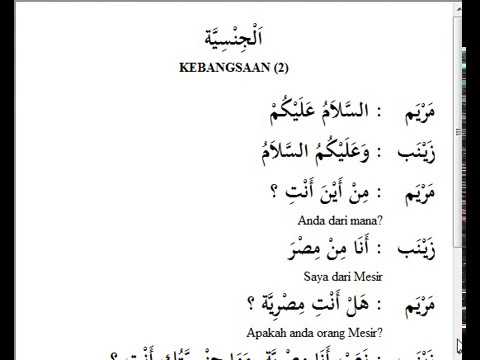 اَلْجِنْسِيَّة
KEBANGSAAN (2)
مَرْيَم : السَّلَامُ عَلَيْكُمْ
زَيْنَب : وَعَلَيْكُمُ السَّلَامُ
مَرْيَم : مِنْ أَيْنَ أَنْتِ ؟
Anda dari mana?
زَيْنَب : أَنَا مِنْ مِصْرَ
Saya dari Mesir
مَرْيَم : هَلْ أَنْتِ مِصْرِيَّة ؟
Apakah anda orang Mesir?
زَيْنَب : نَعَمْ أَنَا مِصْرِيَّة وَمَا جِنْسِيَّتُكِ أَنْتِ ؟